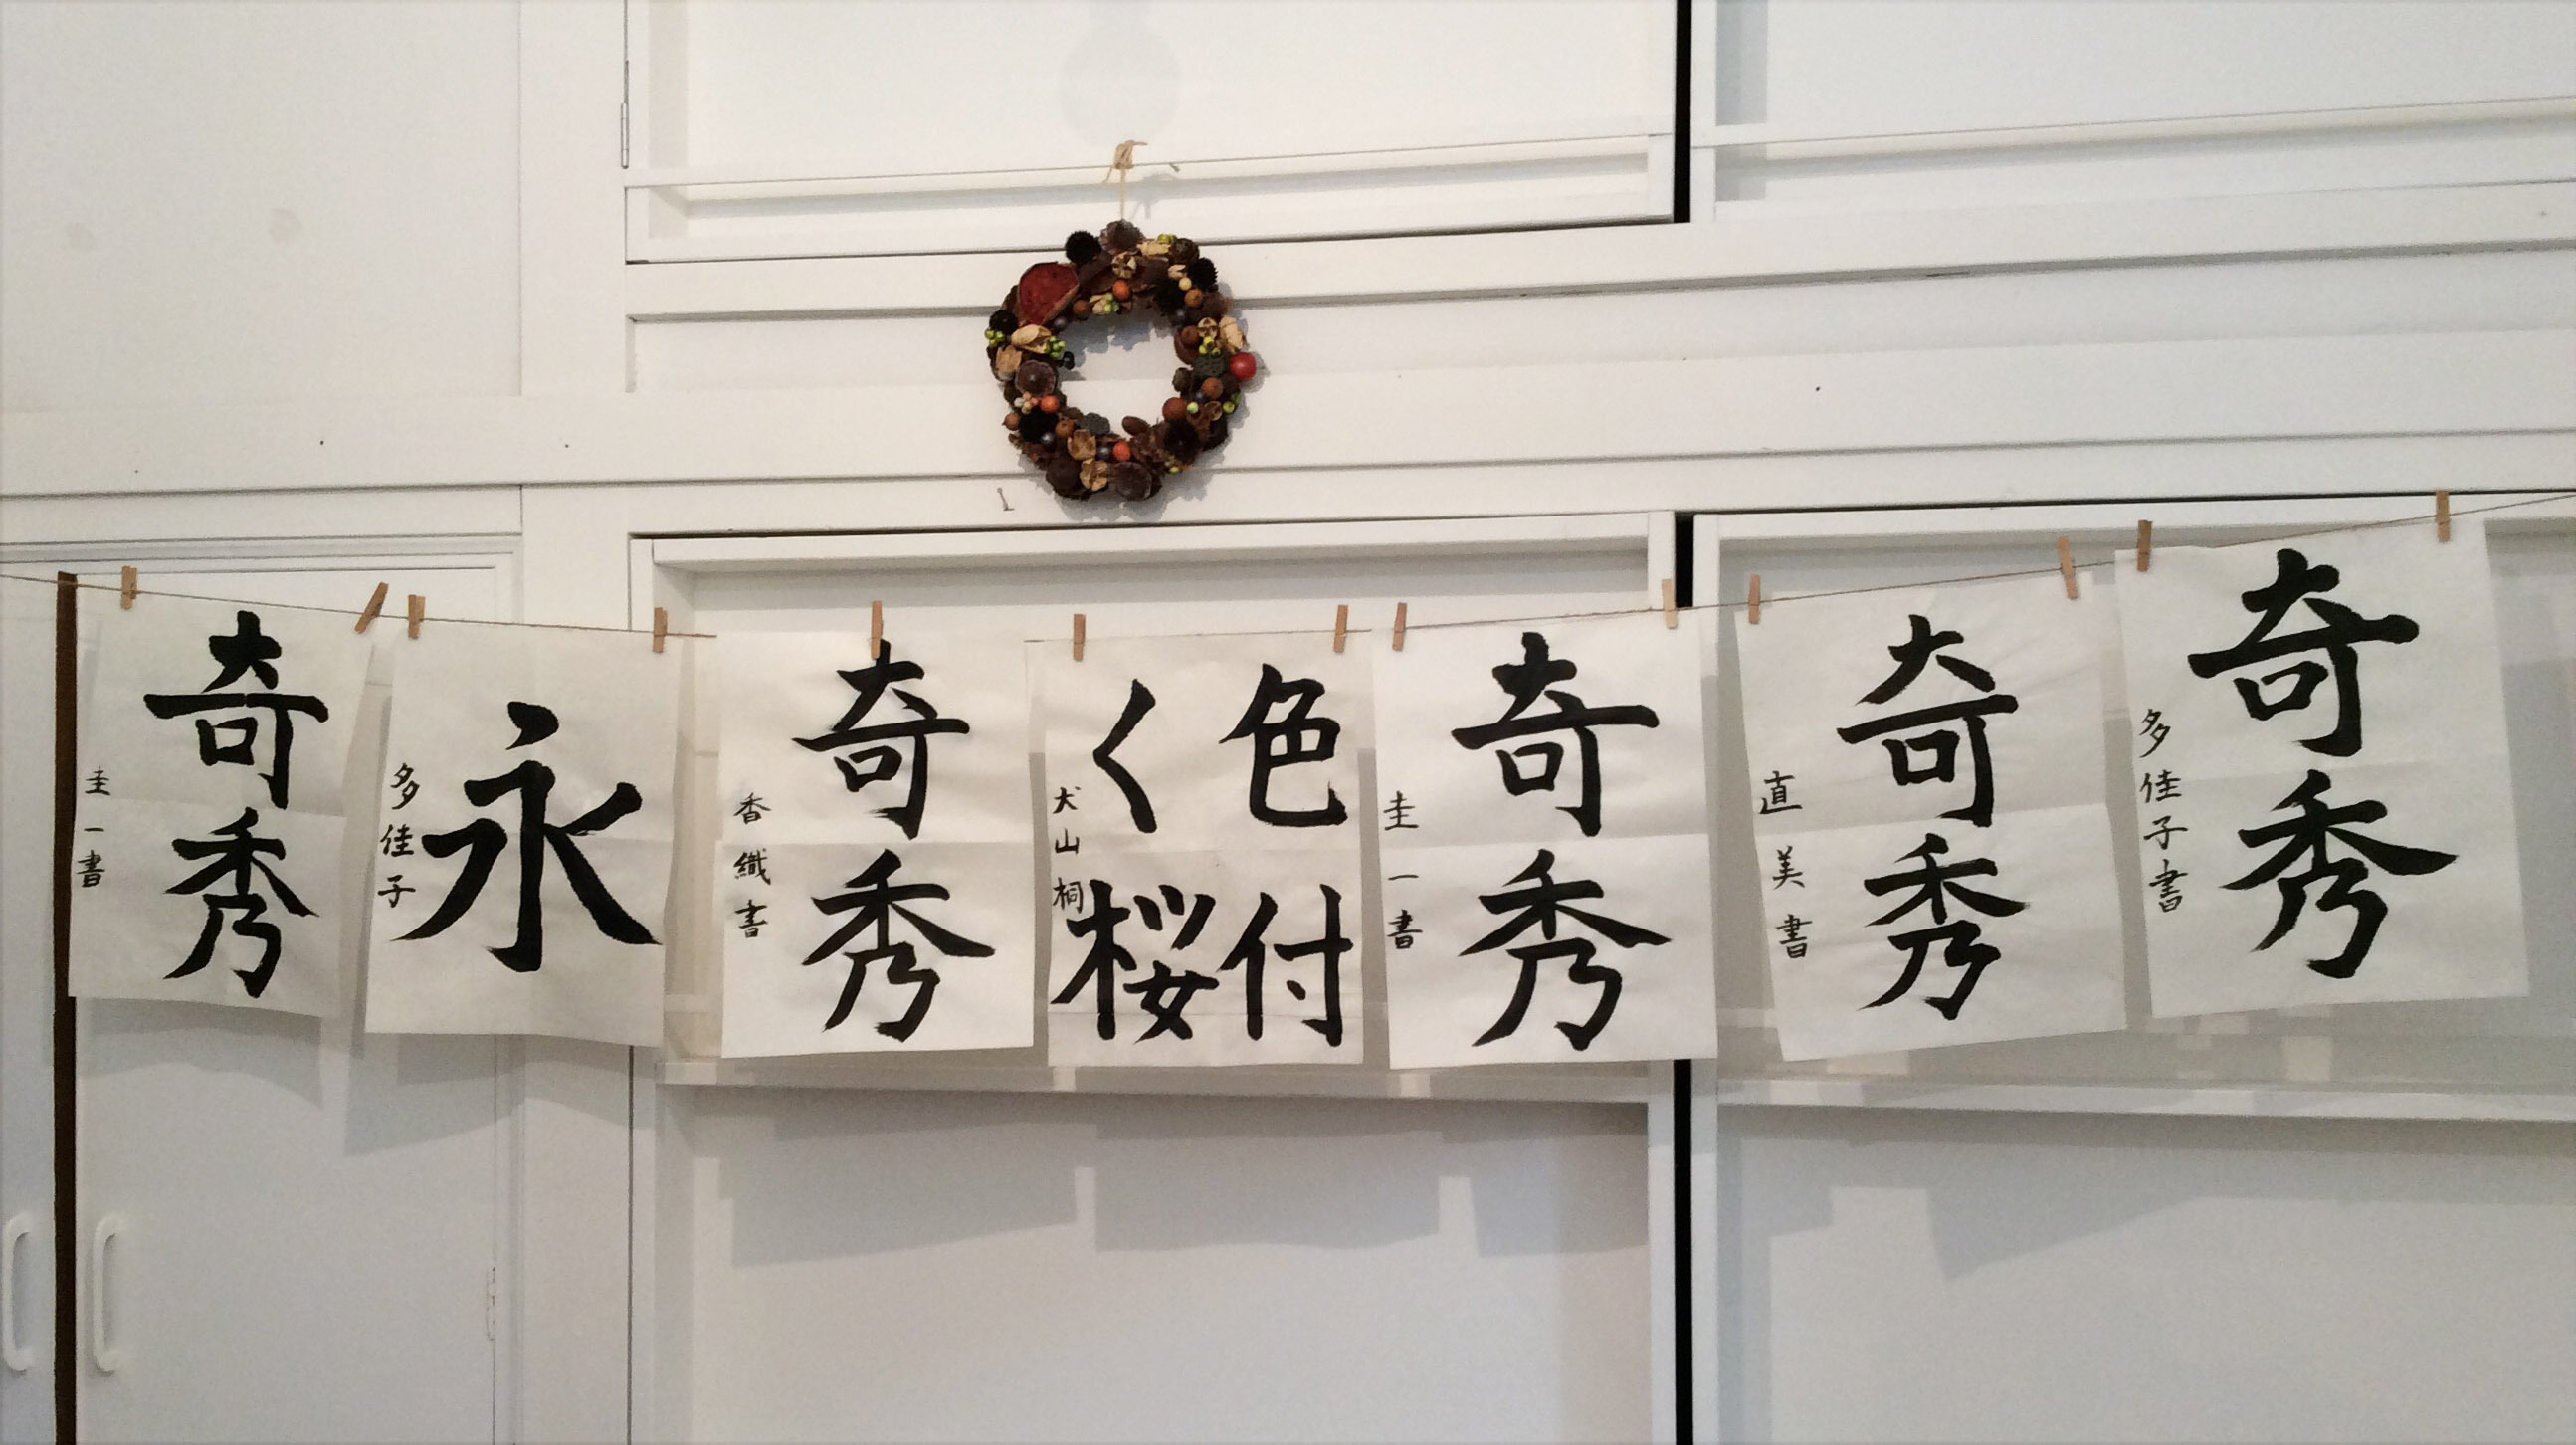 奇秀
圭一書
永
多佳子
奇秀
香織書
色付
く桜
犬山桐
奇秀
圭一書
奇秀
直美書
奇秀
多佳子書